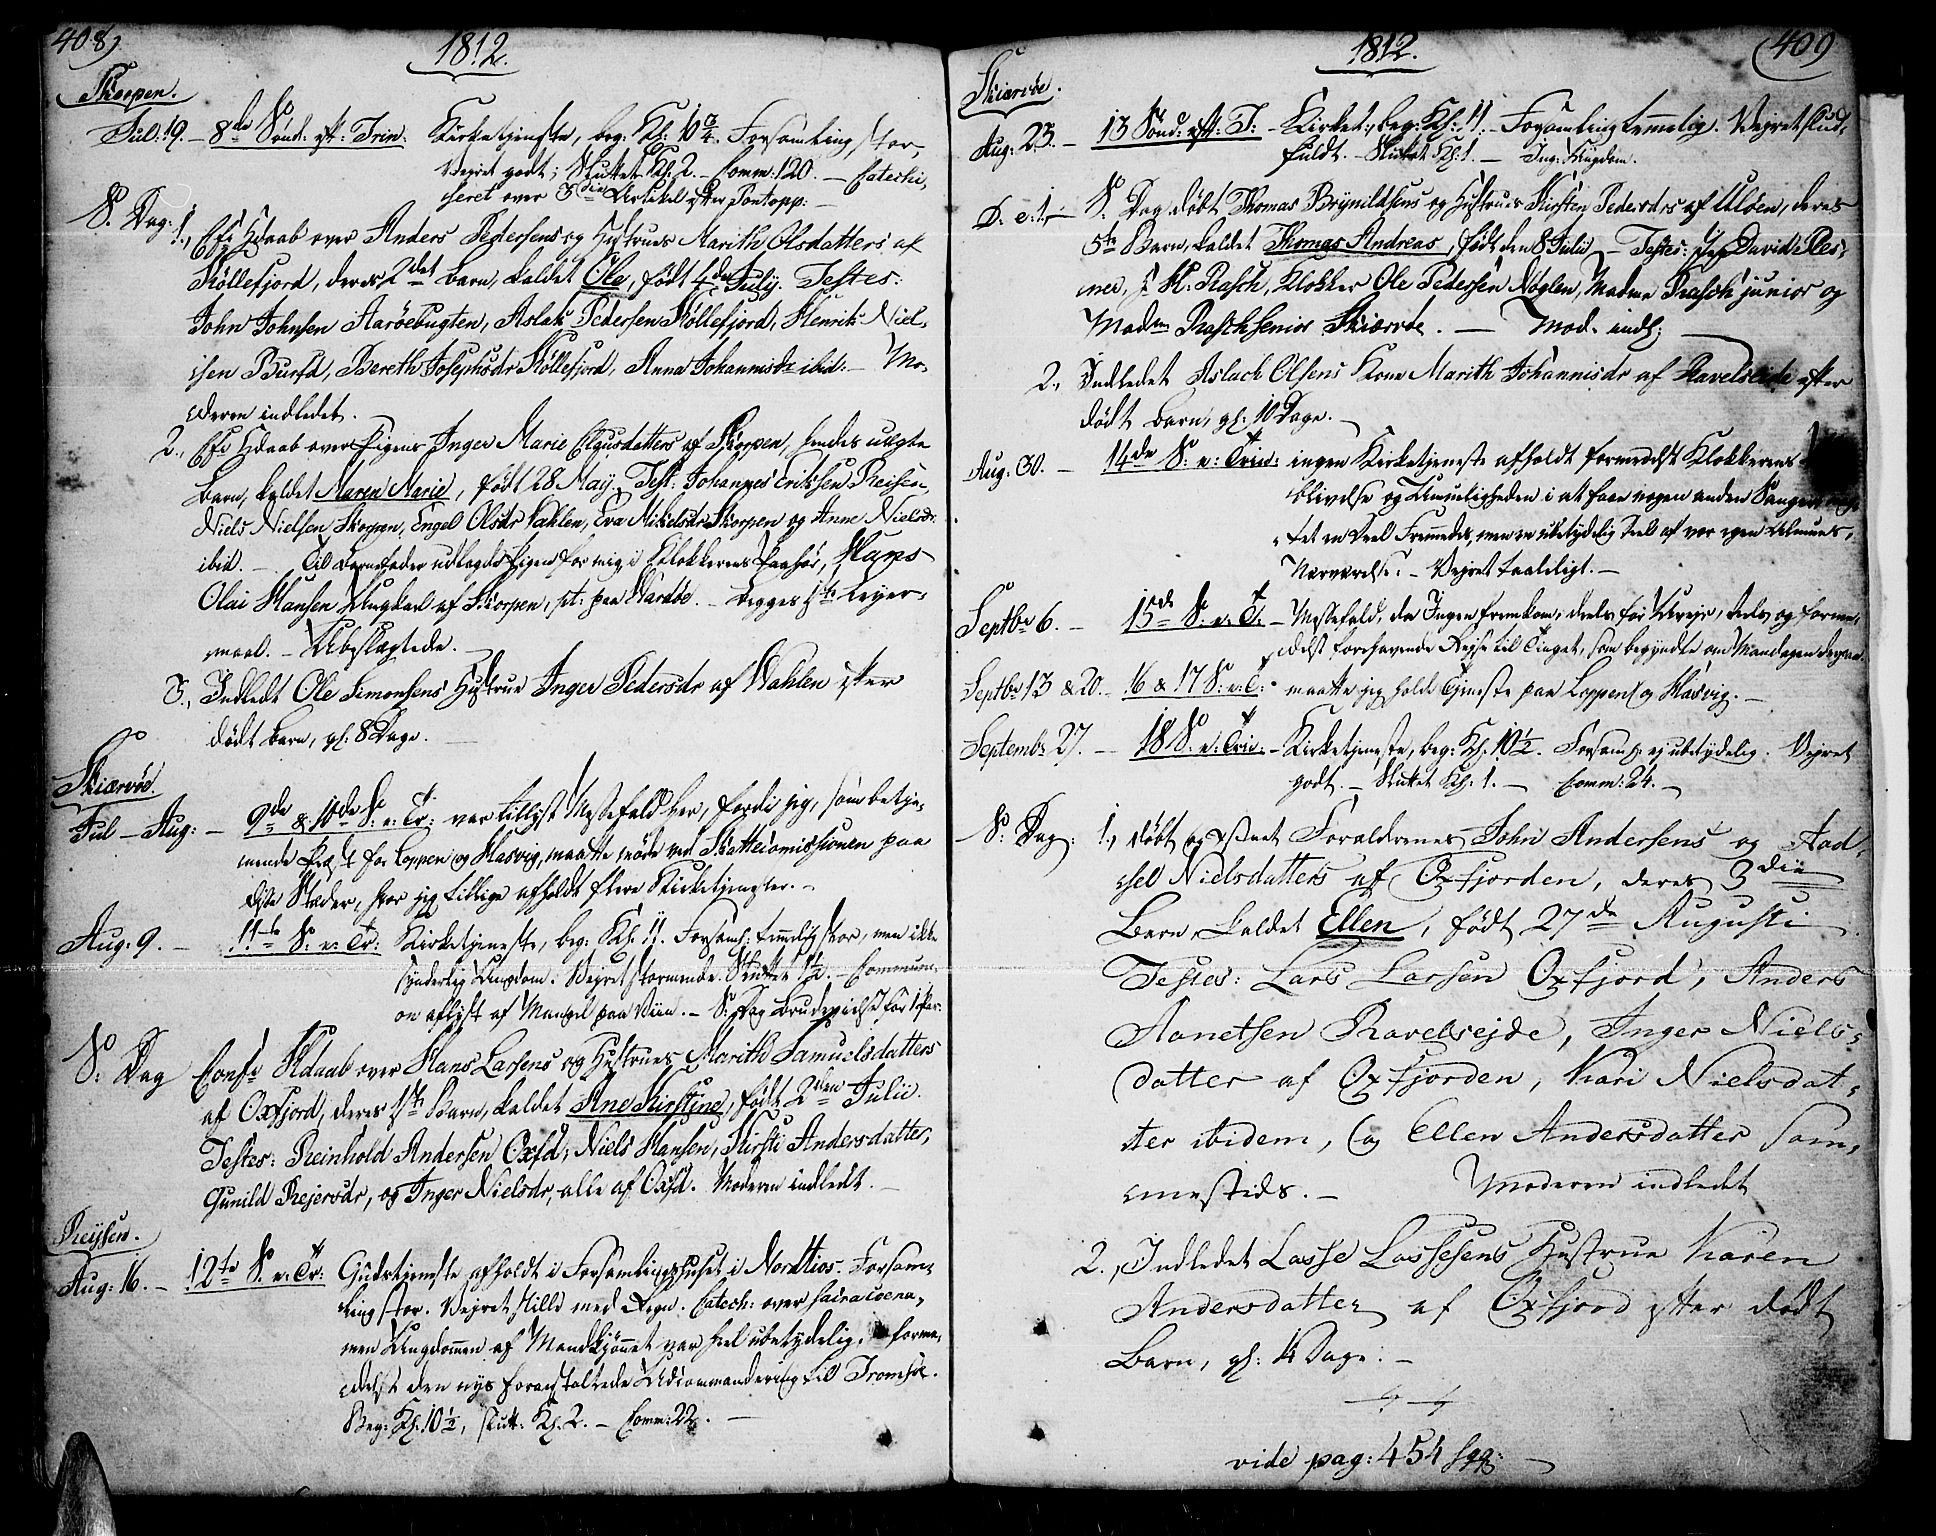 408)
1812.
Skorpen.
Jul: 19. – 8de Sønd: eft: Trin. Kirketjeneste, beg: Kl: 10 3/4. Forsamling stor,
Vejret godt; Sluttet Kl: 2. – Comm: 120. – Catechi,
seret over 3die Artikel efter Pontopp: –
S. Dag: 1., Cft Hdaab over Anders Pedersens og Hustrues Marith Olsdatters af
Køllefjord, deres 2det Barn, kaldet Ole, født 4de July. Testes:
John Johnsen Aarøebugten, Aslak Pedersen Køllefjord, Henrik Niel,
sen Burfd, Bereth Josephsdr Køllefjord, Anna Johannisdr ibid: – Mo,
deren indledet. –
2., Cft Hdaab over Pigens Inger Marie Clausdatters af Skorpen, hendes uægte
Barn, kaldet Maren Marie, født 28 May. Test: Johannes Erikssen Reisen,
Niels Nielsen Skorpen, Engel Olsdr Vahlen, Eva Mikelsdr Skorpen og Anne Nielsdr
ibid. – Til Barnefader udlagde Pigen for mig i Klokkerens Paahør, Hans
Olai Hansen Ungkarl af Skorpen, pt: paa Vardøe. – Begges 1ste Leyer,
maal. – Ubeslægtede. –
3., Indledt Ole Simonsens Hustrue Inger Pedersdr af Wahlen efter
dødt Barn, gl: 8 Dage. –
Skiærvøe.
Jul – Aug: – 9de & 10de S: e: Tr: var tillyst Messefald her, fordi jeg, som betje,
nende Præst for Loppen og Hasvig, maatte møde ved Skattecomissionen paa
disse Stæder, hvor jeg tillige afholdt flere Kirketjenester. –
Aug: 9. – 11te S: e: Tr: Kirketjeneste, beg: Kl: 11. Forsaml: temmelig stor, men ikke
synderlig Ungdom. Vejret stormende. Sluttet 1 1/2. – Communi,
on aflyst af Mangel paa Viin. – S: Dag Brudevielse for 1 Par.
S: Dag Conft Hdaab over Hans Larsens og Hustrues Marith Samuelsdatters
af Oxfjord, deres 1ste Barn, kaldet Ane Kirstine, født 2den Julii.
Testes: Reinhold Andersen Oxfd, Niels Hansen, Kirsti Andersdatter,
Gunild Rejersdr, og Inger Nielsdr, alle af Oxfd. Moderen indledt. –
Reysen.
Aug: 16. – 12te S. e: Tr: Gudstjeneste afholdt i Forsamlingshuset i Nordtios. Forsam,
ling stor. Vejret stille med Regn. Catech: over sacra coena,
men Ungdommen af Mandkjønnet var heel ubetydelig, forme,
delst den nys foranstaltede Udcommandering til Tromsøe.
Beg: Kl. 10 1/2, slutt: Kl: 2. – Comm: 22. –
1812.
(409
Skiærvøe.
Aug: 23. – 13 Sønd: eft: T: – Kirket: beg: Kl: 11. – Forsamling temmelig. Vejret slud,
fuldt. – Sluttet Kl: 1. – Ing: Ungdom.
D. e: 1., – S: Dag døbt Thomas Brynildsens og Hustrues Kirsten Pedersdrs af Uløen, deres
5te Barn, kaldet Thomas Andreas, født den 8 Julii – Testes: Jep Davids Res,
mee, J. H. Rasch, Klokker Ole Pedersen Nøglen, Madme Rasch junior og
Madm Rasch senior Skiærvøe. – Mod. indl: –
2., Indledet Aslach Olsens Kone Marith Johannisdr af Ravelseide efter
dødt Barn, gl: 10 Dage. –
Aug: 30. – 14de S: e: Trin: ingen Kirketjeneste afholdt formedelst Klokkerens
blivelse og Umueligheden i at faae nogen anden Sanger
tet en Deel Fremmede, men en ubetydelig Deel af vor egen Almues,
Nærværelse. – Vejret taaleligt. –
Septbr 6. – 15de S: e: T: – Messefald, da Ingen fremkom, deels for Uvejr, deels og forme,
delst forehavende Rejse til Tinget, som begyndte om Mandagen derpaa.
Septbr 13 & 20. – 16 & 17 S: e: T: – maatte jeg holde Tjeneste paa Loppen og Hasvig. –
Septembr 27. – 18 S: e: Trin: – Kirketjeneste, beg: Kl: 10 1/2. Forsaml: ej ubetydelig. Vejret
godt. – Sluttet Kl: 1. – Comm: 24. –
– S: Dag: 1., døbt og Forældrenes John Andersens og Aad,
sel Nielsdatters af Oxfjorden, deres 3die
Barn, kaldet Ellen, født 27de Augusti
Testes: Lars Larsen Oxfjord, Anders
Aanetsen Ravelsejde, Inger Niels,
datter af Oxfjorden, Kari Nielsdat,
ter ibidem, og Ellen Andersdatter sam,
mesteds. – Moderen indledet
2., Indledet Lasse Lassesens Hustrue Karen
Andersdatter af Oxfjord efter dødt
Barn, gl: 14 Dage. –
vide pag: 454 sqq: –